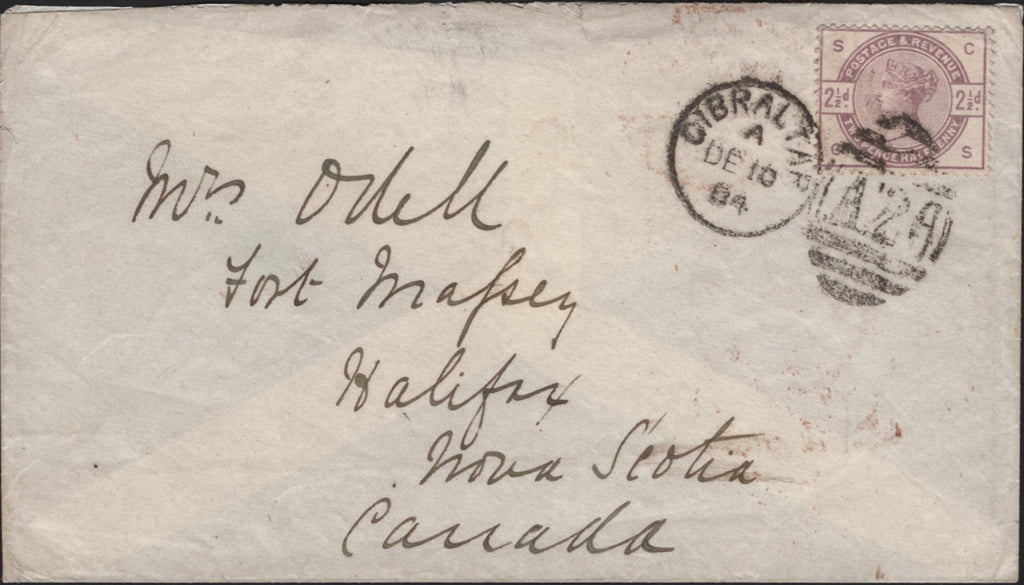 S C
POSTAGE & REVENUE
2½d. 2½d.
TWO PENCE HALFPENNY
S
GIBRALTAR
A
DE 10
84
A26
Mrs. Odell
Fort Massey
Halifax
Nova Scotia
Canada